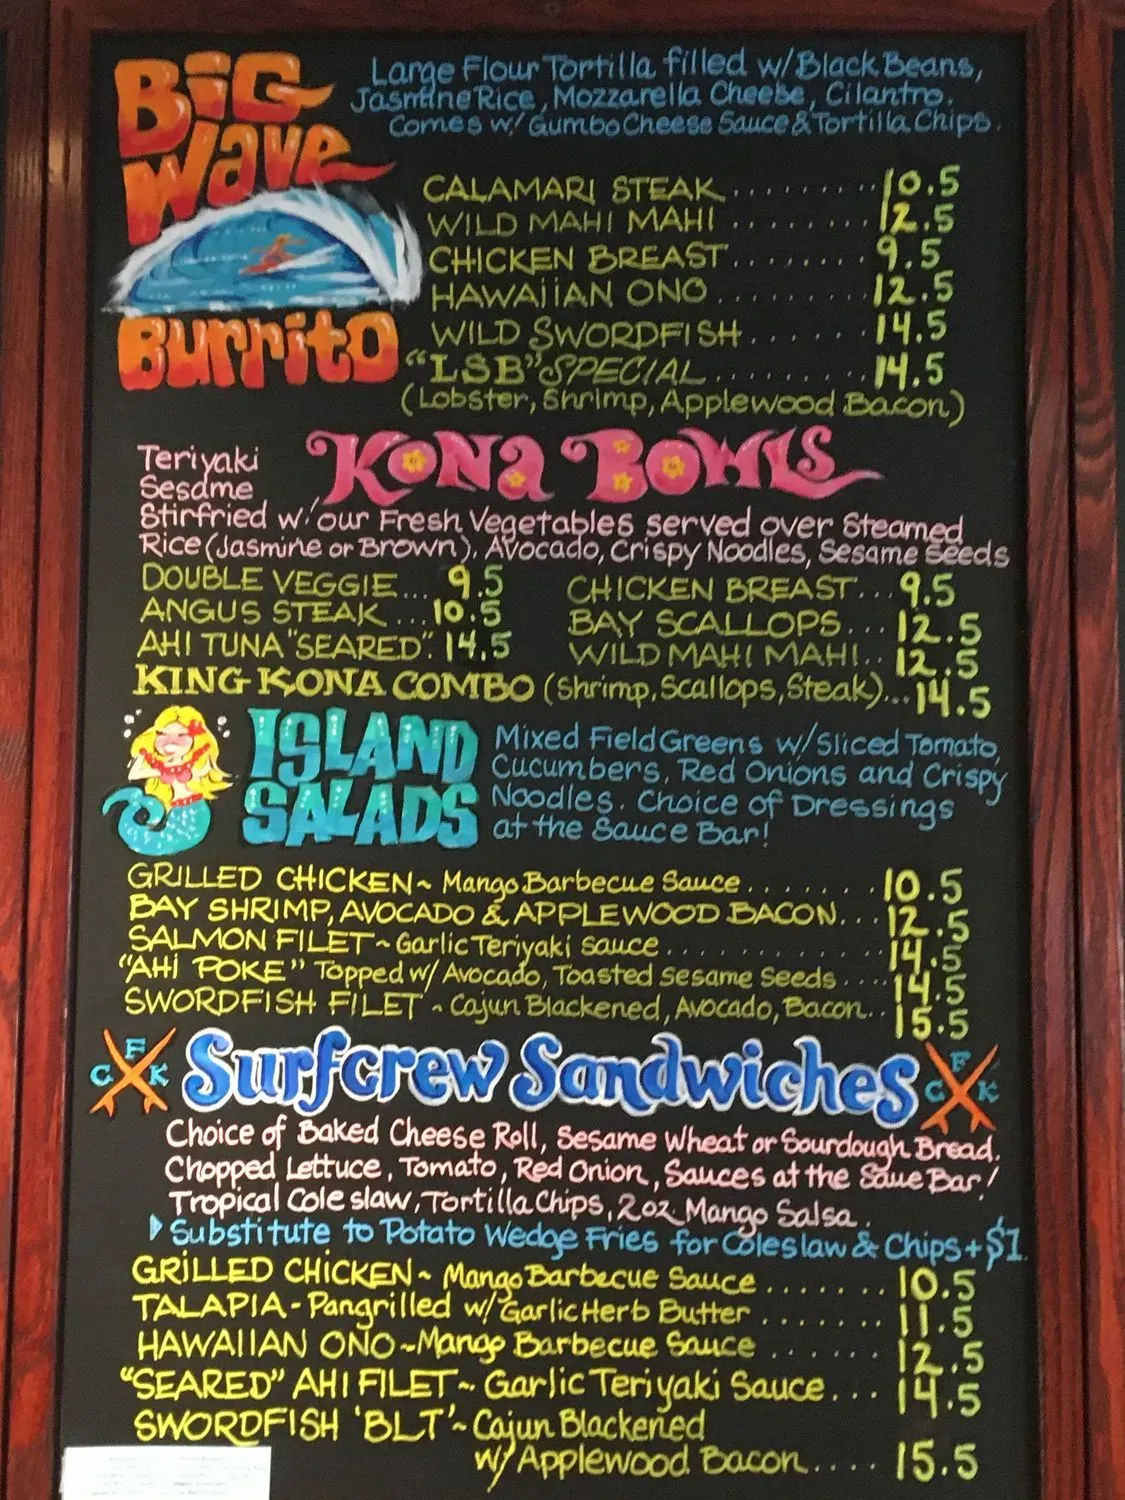 BiG
Wave
Burrito
Large Flour Tortilla filled w/ Black Beans,
Jasmine Rice, Mozzarella Cheese, Cilantro.
Comes w/ Gumbo Cheese Sauce & Tortilla Chips.
CALAMARI STEAK ......... 10.5
WILD MAHI MAHI ........ 12.5
CHICKEN BREAST ........ 9.5
HAWAIIAN ONO ......... 12.5
WILD SWORDFISH ....... 14.5
"LSB" SPECIAL .......... 14.5
(Lobster, Shrimp, Applewood Bacon)
KONA BOWLS
Teriyaki
Sesame
Stirfried w/ our Fresh Vegetables served over Steamed
Rice (Jasmine or Brown). Avocado, Crispy Noodles, Sesame Seeds
DOUBLE VEGGIE... 9.5 CHICKEN BREAST... 9.5
ANGUS STEAK ... 10.5 BAY SCALLOPS... 12.5
AHI TUNA "SEARED". 14.5 WILD MAHI MAHI.. 12.5
KING KONA COMBO (Shrimp, Scallops, Steak)... 14.5
ISLAND
SALADS
Mixed Field Greens w/ Sliced Tomato,
Cucumbers, Red Onions and Crispy
Noodles. Choice of Dressings
at the Sauce Bar!
GRILLED CHICKEN ~ Mango Barbecue Sauce ....... 10.5
BAY SHRIMP, AVOCADO & APPLEWOOD BACON... 12.5
SALMON FILET ~ Garlic Teriyaki Sauce .......... 14.5
"AHi POKE" Topped w/ Avocado, Toasted Sesame Seeds .... 14.5
SWORDFISH FILET ~ Cajun Blackened, Avocado, Bacon.. 15.5
C F K Surfcrew Sandwiches C F K
Choice of Baked Cheese Roll, Sesame Wheat or Sourdough Bread.
Chopped Lettuce, Tomato, Red Onion, Sauces at the Saue Bar!
Tropical Cole slaw, Tortilla Chips, 2oz. Mango Salsa.
Substitute to Potato Wedge Fries for Coleslaw & Chips + $1.
GRiLLED CHICKEN ~ Mango Barbecue Sauce ....... 10.5
TALAPIA - Pangrilled w/ Garlic Herb Butter ....... 11.5
HAWAIIAN ONO ~ Mango Barbecue Sauce ...... 12.5
"SEARED" AHI FILET ~ Garlic Teriyaki Sauce ... 14.5
SWORDFISH 'BLT' ~ Cajun Blackened
w/ Applewood Bacon .... 15.5